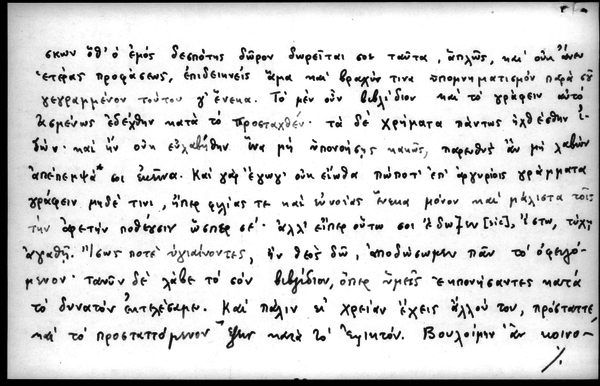 σκων ὅθ' ὁ ἐμὸς δεσπότης δῶρον δωρεῖται σοι ταῦτα, ἁπλῶς, καὶ οὐκ ἄνευ
ἑτέρας προφάσεως, ἐπιδεικνεὶς ἅμα καὶ βραχύν τινα ὑπομνηματισμὸν παρὰ σοῦ
γεγραμμένον τούτου γ' ἕνεκα. Τὸ μὲν οὖν βιβλίδιον καὶ τὸ γράφειν αὐτὸ
ἀσμένως ἐδέχθην κατὰ τὸ προσταχθέν· τὰ δὲ χρήματα πάντως ἠχθέσθην ἰ-
δών· καὶ ἦν οὐκ εὐλαβήθην ἵνα μὴ ὑπονοήσῃς κακῶς, παρευθὺς ἂν μὴ λαβὼν
ἀπέπεμψά σοι ἐκεῖνα. Καὶ γὰρ ἔγωγ' οὐκ εἴωθα πώποτ' ἐπ' ἀργυρίοις γράμματα
γράφειν μηδέ τινι, ὑπὲρ φιλίας τε καὶ εὐνοίας ἕνεκα μόνον καὶ μάλιστα τοῖς
τὴν ἀρετὴν ποθέουσιν ὥσπερ σέ· ἀλλ' εἴπερ οὕτω σοι [sic], ἔστω, τύχῃ
ἀγαθῇ. Ἴσως ποτὲ ὑγιαίνοντες, ἢν θεὸς δῷ, ἀποδώσωμεν πᾶν τὸ ὀφειλό-
μενον· τανῦν δὲ λάβε τὸ σὸν βιβλίδιον, ὅπερ ἡμεῖς ἐκπονήσαντες κατὰ
τὸ δυνατὸν ἐκτελέσαμε. Καὶ πάλιν εἰ χρείαν ἔχεις ἄλλου του, πρόσταττε
καὶ τὸ προσταττόμενον κατὰ τὸ ἐφικτόν. Βουλοίμην ἂν κοινο-